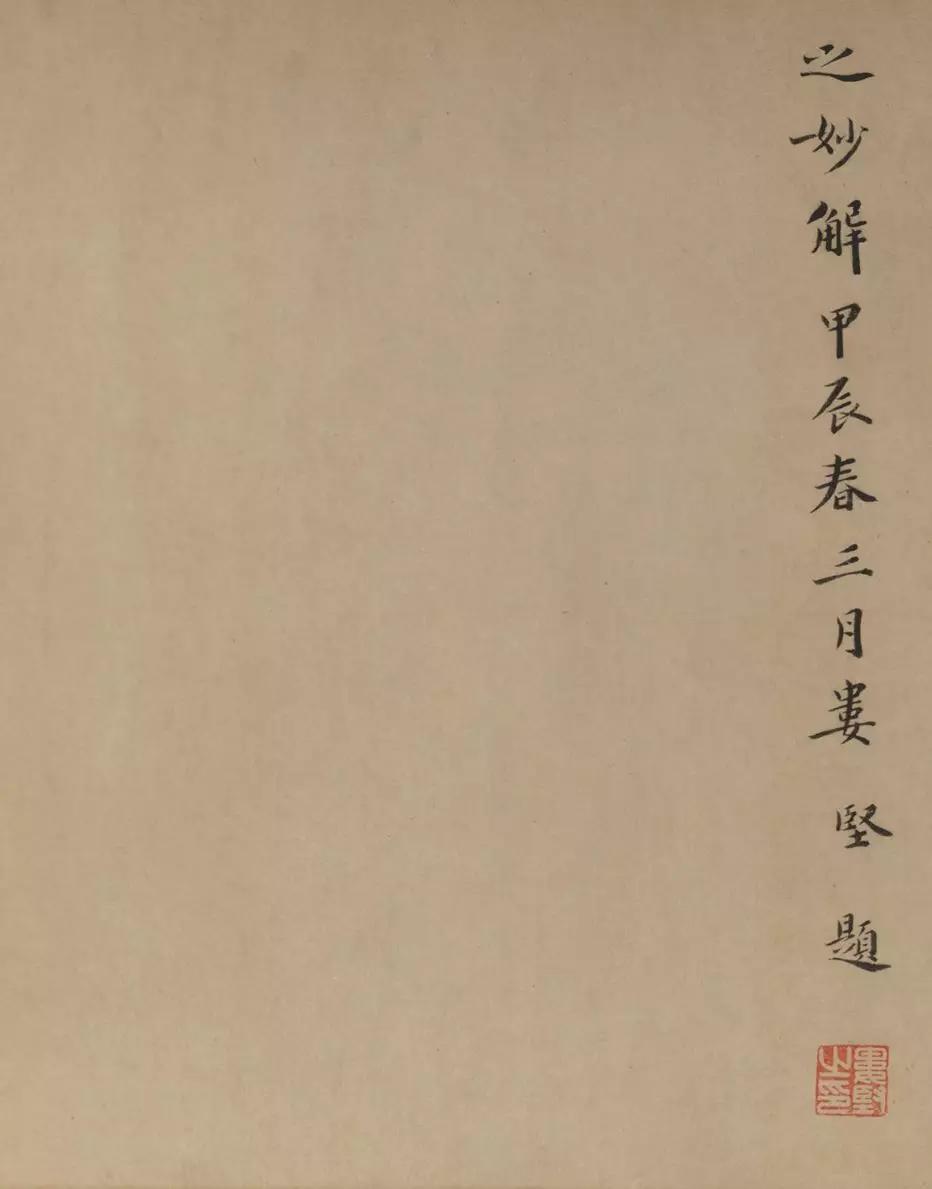 之妙解甲辰春三月婁堅題
婁堅之印